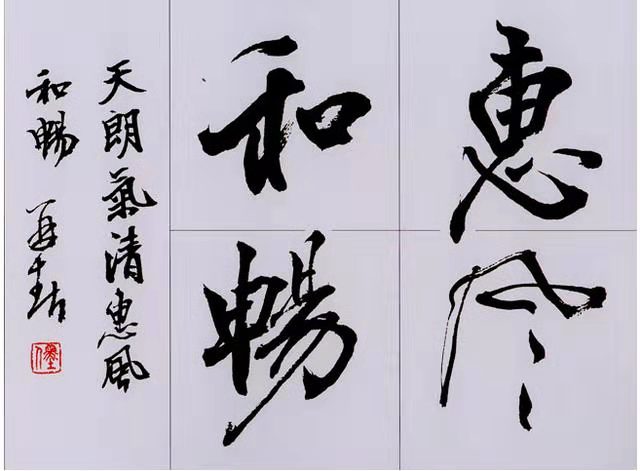 惠風
和暢
天朗氣清惠風
和暢